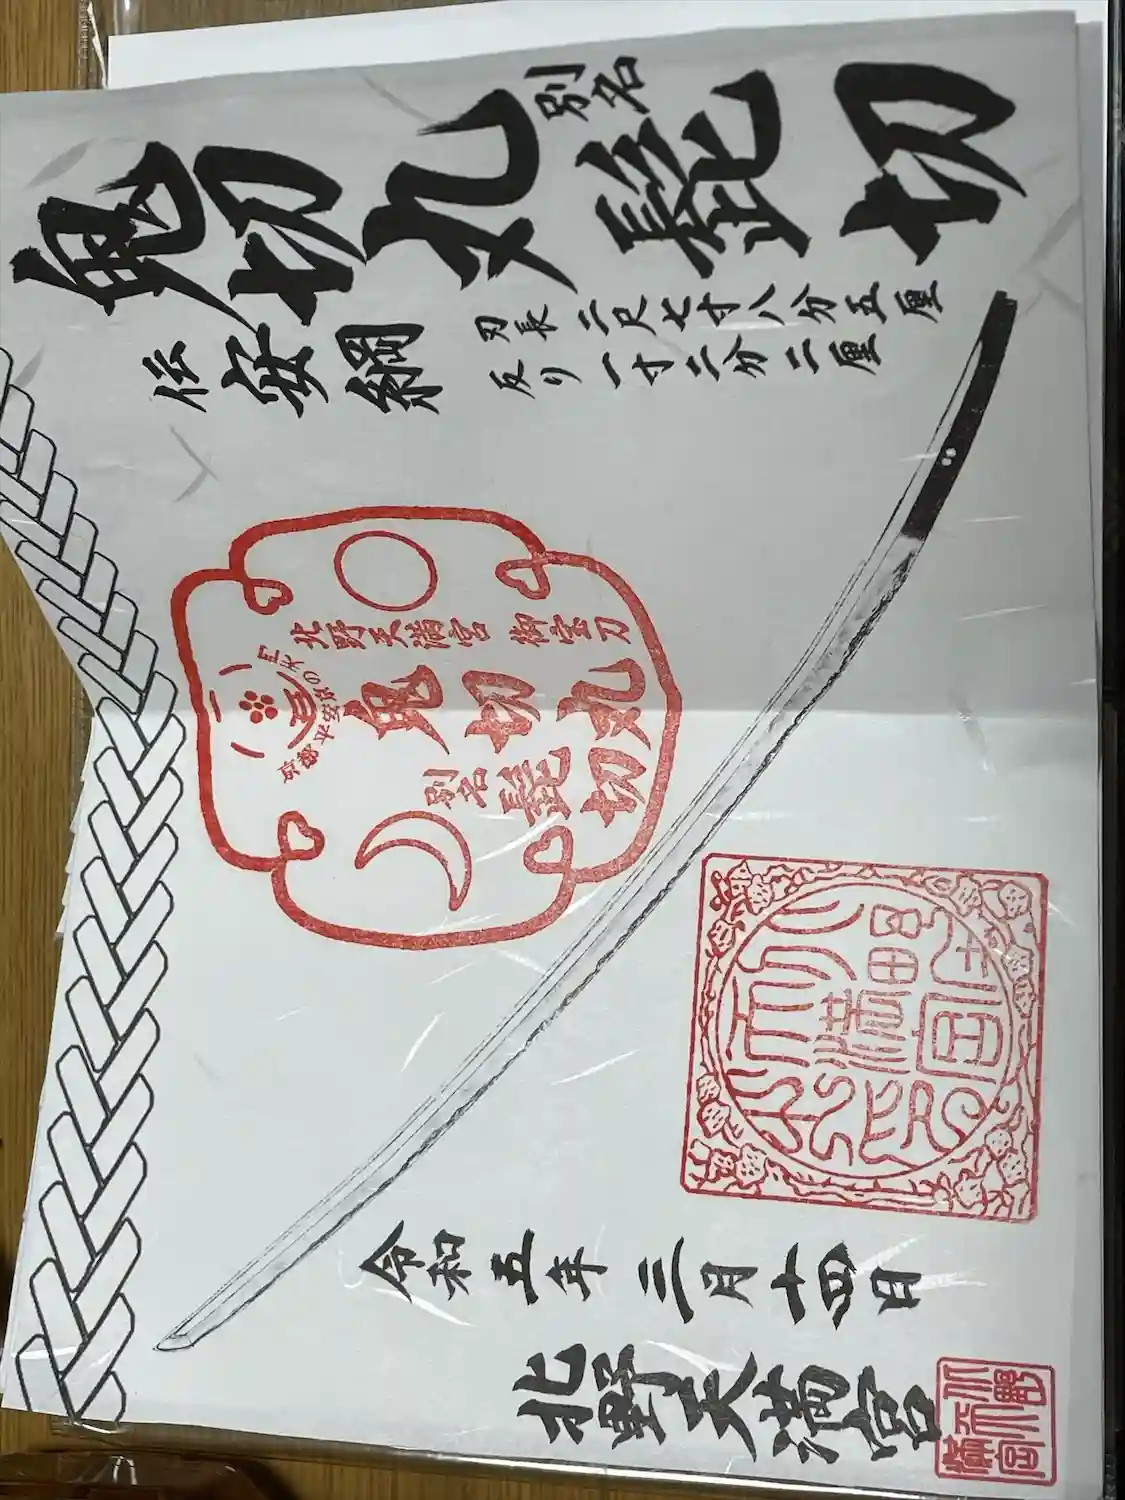 鬼切丸 別名 髭切
刃長 二尺七寸八分五厘
反り 一寸二分二厘
伝 安綱
北野天満宮 御宝刀
鬼切丸
別名 髭切
北野天満宮
令和五年 三月十四日
北野天満宮